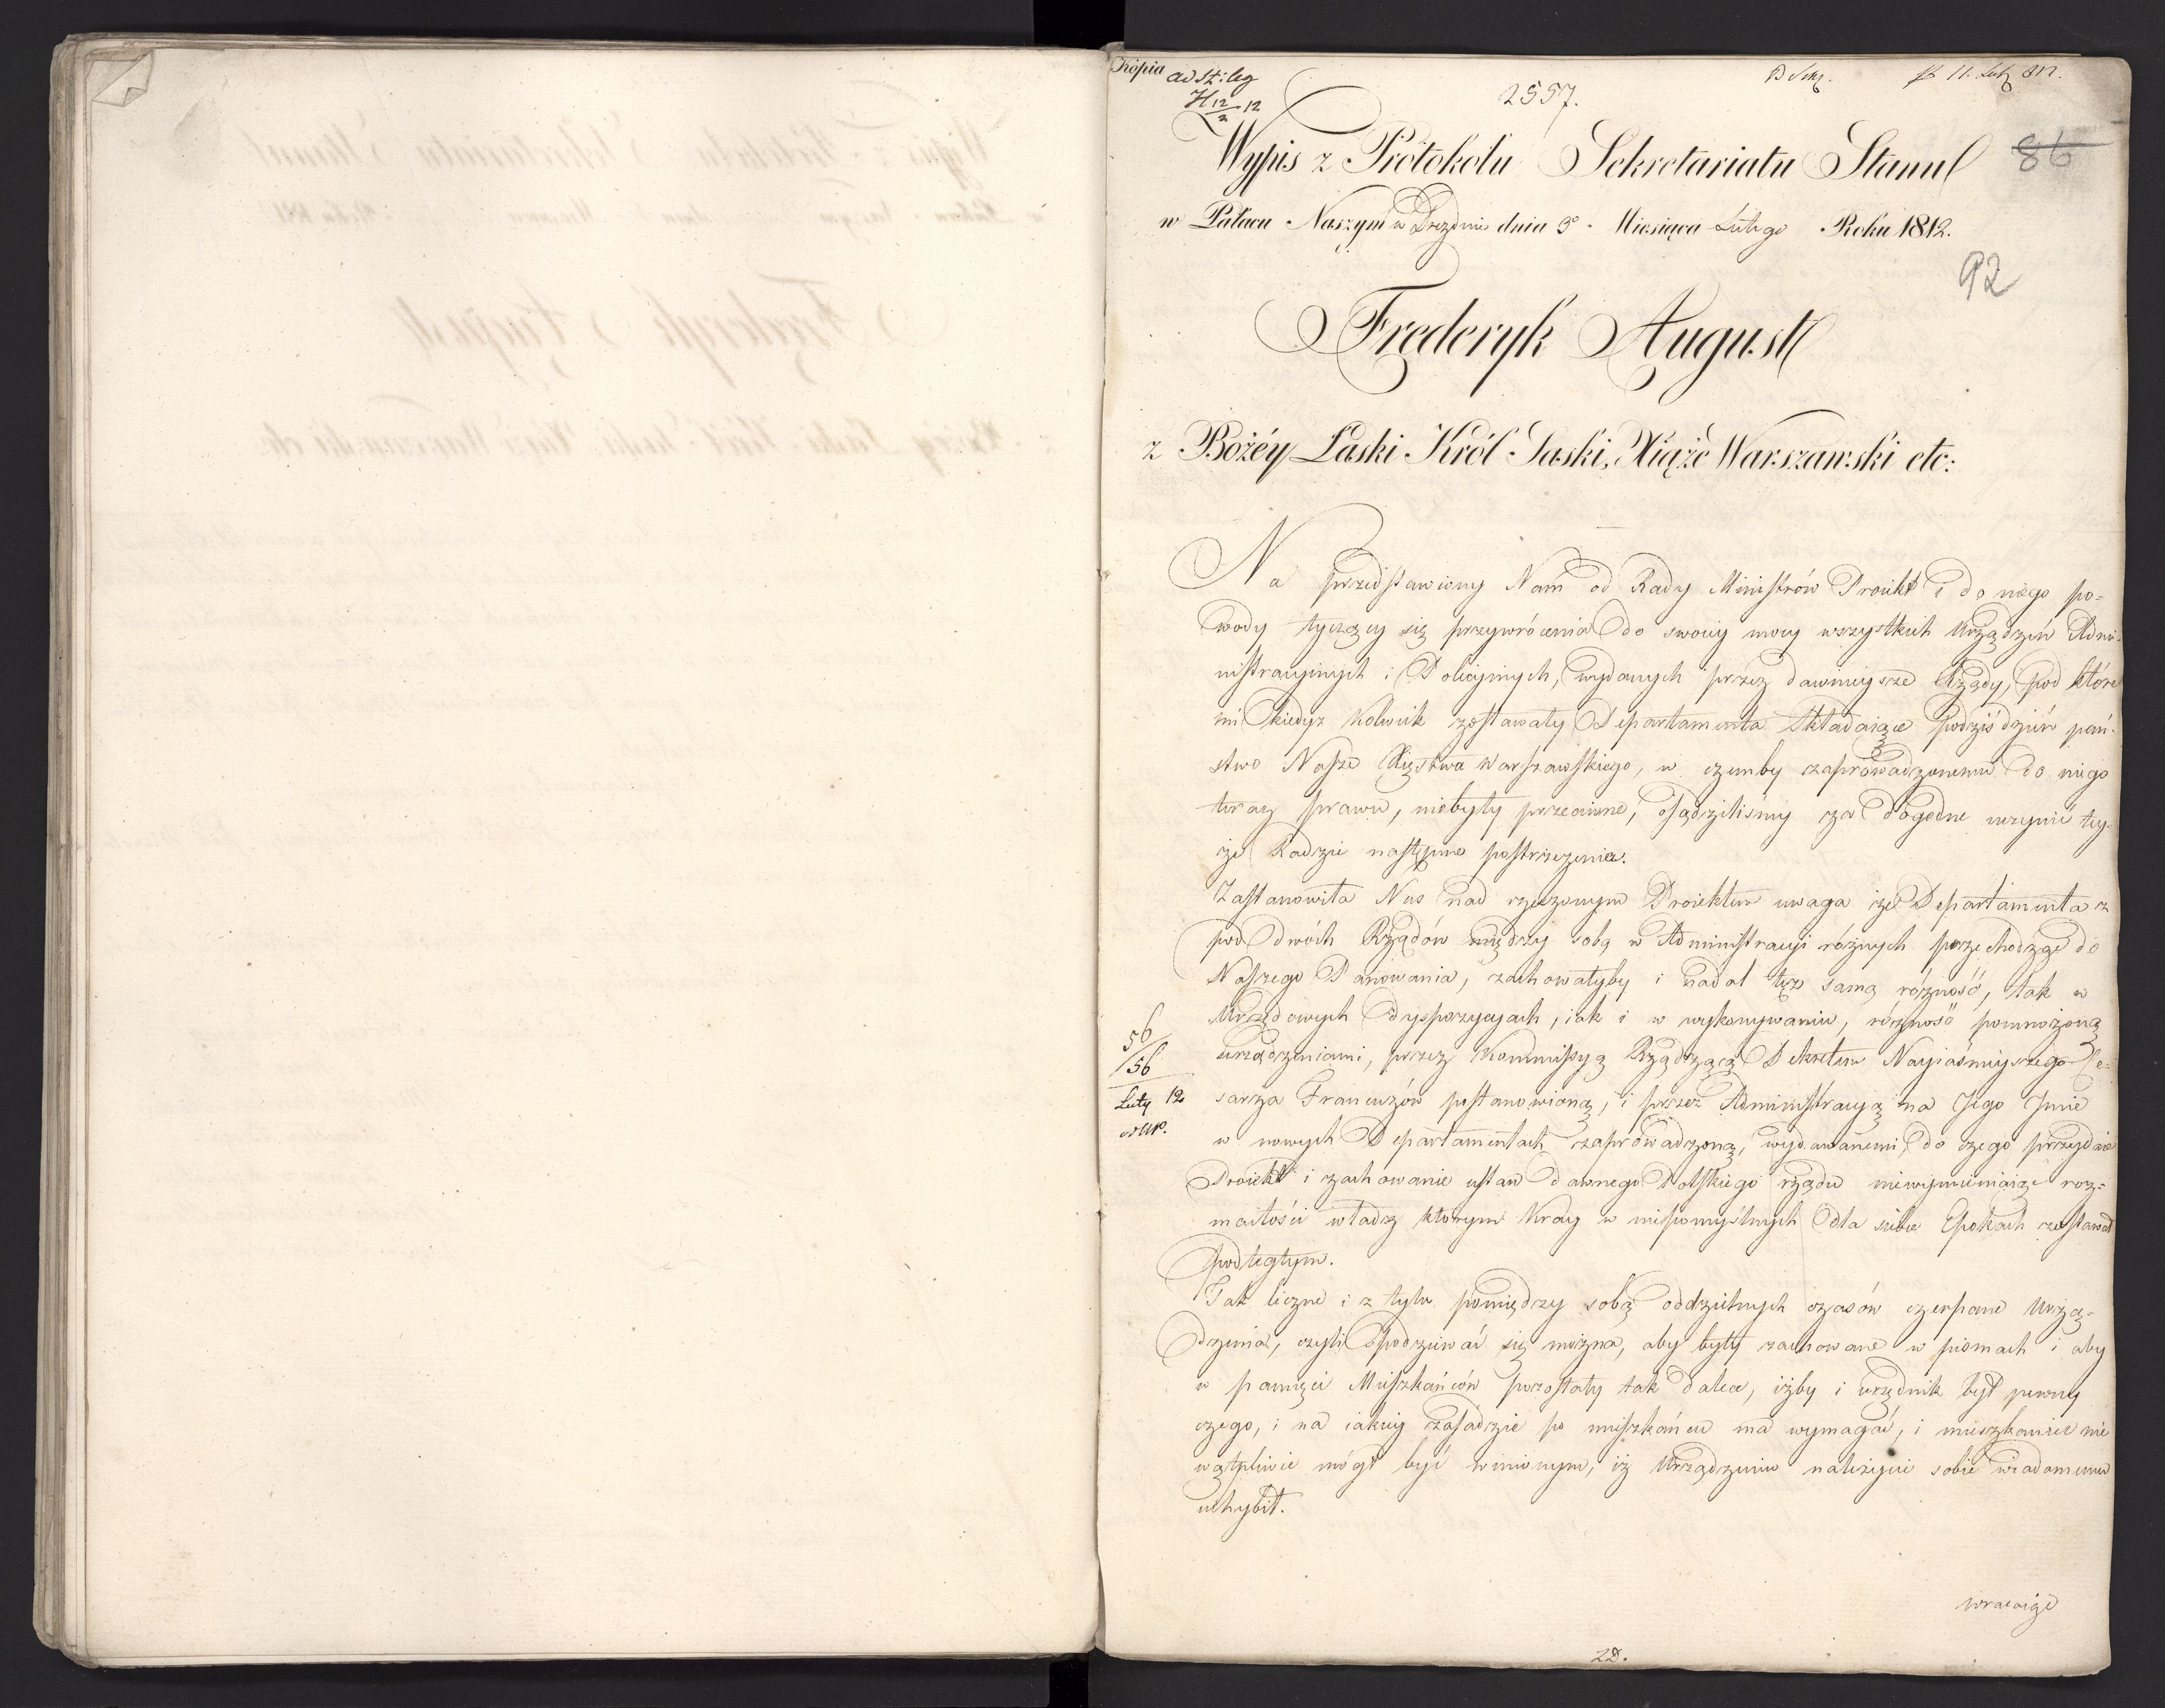 Kopia ad St: leg
2557.
Wypis z Protokołu Sekretariatu Stanu
86
w Pałacu Naszym w Dreznie dnia 3º Miesiąca Lutego Roku 1812.
92
Frederyk August
z Bożéy Łaski Król Saski, Xiążę Warszawski etc:
Na przedstawiony Nam od Rady Ministrów Proiekt i do niego po=
wody tyczący się przywrócenia do swoiey mocy wszystkich Urządzeń Admi-
nistracyinych i Policyinych, wydanych przez dawnieysze Rządy, pod które
mi kiedyż kolwiek zostawały Departamenta składaiące podziśdzień pań-
stwo Nasze Xięstwa Warszawskiego, w czemby zaprowadzonemu do niego
teraz prawu, niebyły przeciwne, osądziliśmy za dogodne uczynić tey-
że Radzie następne postrzeżenia.
Zastanowiła Nas nad rzeczonym Proiektem uwaga że Departamenta z
pod dwóch Rządów między sobą w Administracyi różnych przechodząc do
Naszego Panowania, zachowałyby i nadal też samą różność, tak w
Urzędowych dyspozycyach, iak i w wykonywaniu, różność pomnożoną
urządzeniami, przez Kommissyą Rządzącą Dekretem Nayiaśnieyszego Ce-
sarza Francuzów postanowioną, i przez Administracyą na Jego Imie
w nowych Departamentach zaprowadzoną, wydawanemi, do czego przydaie
Proiekt i zachowanie ustaw dawnego Polskiego rządu niewymieniaiąc roz-
maitości władz którym Kray w niepomyślnych dla siebie Epokach zostawał
podległym.
Tak liczne i z tylu pomiędzy sobą oddzielnych czasów czerpane Urzą-
dzenia, czyli spodziewać się można, aby były zachowane w pismach i aby
w pamięci Mieszkańców pozostały tak dalece, iżby i urzędnik był pewny
czego, i na iakiey zasadzie po mieszkańcu ma wymagać, i mieszkaniec nie
wątpliwie mógł być winionym, iż Urządzeniu należycie sobie wiadomemu
uchybił.
56
/56
Luty 12
wracaiąc
28.